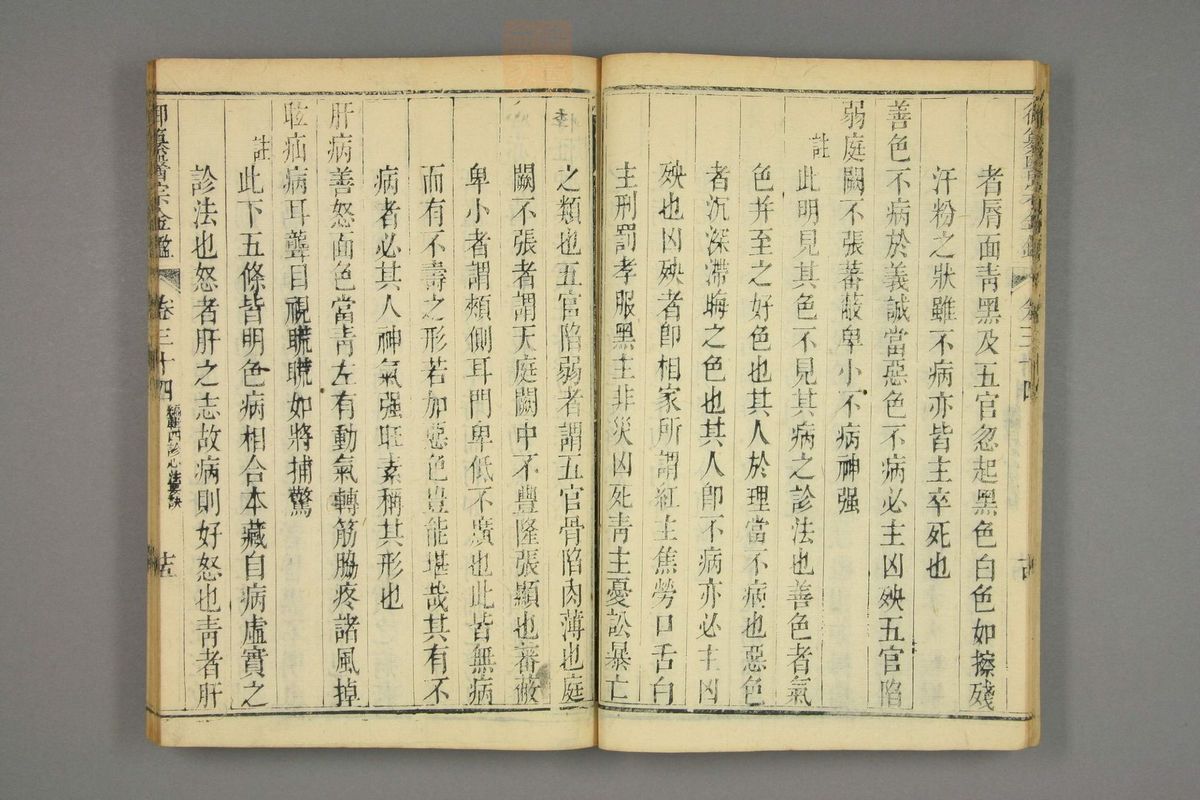 者脣面靑黑及五官忽起黑色白色如擦殘
汗粉之狀雖不病亦皆主卒死也
善色不病於義誠當惡色不病必主凶殃五官陷
弱庭闕不張蕃蔽卑小不病神强
註
此明見其色不見其病之診法也善色者氣
色并至之好色也其人於理當不病也惡色
者沉深滯晦之色也其人卽不病亦必主凶
殃也凶殃者卽相家所謂紅主焦勞口舌白
主刑罰孝服黑主非災凶死靑主憂訟暴亡
之類也五官陷弱者謂五官骨陷肉薄也庭
闕不張者謂天庭闕中不豐隆張顯也蕃蔽
卑小者謂頰側耳門卑低不廣也此皆無病
而有不壽之形若加惡色豈能堪哉其有不
病者必其人神氣强旺素稱其形也
肝病善怒面色當靑左有動氣轉筋脇疼諸風掉
眩疝病耳聾目視䀮䀮如將捕驚
註
此下五條皆明色病相合本藏自病虛實之
診法也怒者肝之志故病則好怒也靑者肝
御纂醫宗金鑑
卷三十四
編輯四診心法要訣